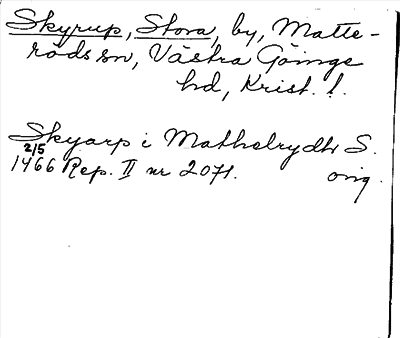 Skyrup, Stora, by, Matte-
röds sn, Västra Göinge
hd, Krist. l.
Skyarp i Mathelrydh S.
2/5
1466 Rep. II nr 2071. orig.